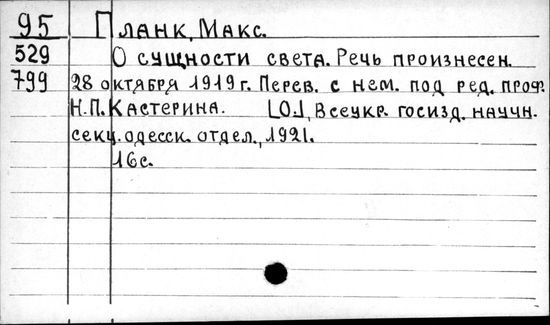 95 Планк, Макс.
529 О сущности света. Речь произнесен.
799 28 октября 1919 г. Перев. с нем. под ред. проф.
Н.П. Кастерина. [О.], Всеукр. госизд. научн.
секц. одесск. отдел., 1921.
16с.